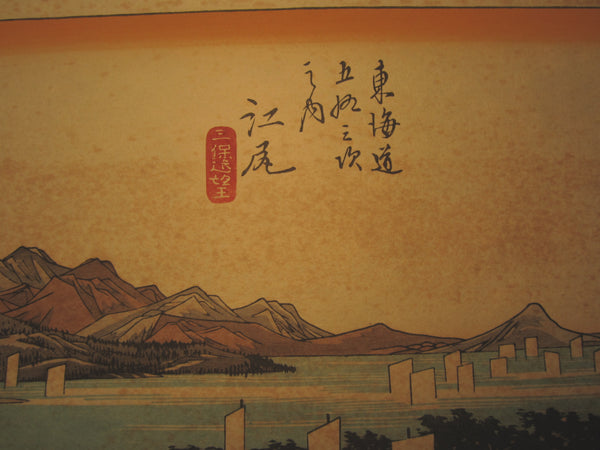 東海道
五拾三次
之内
江尾
三保遠望